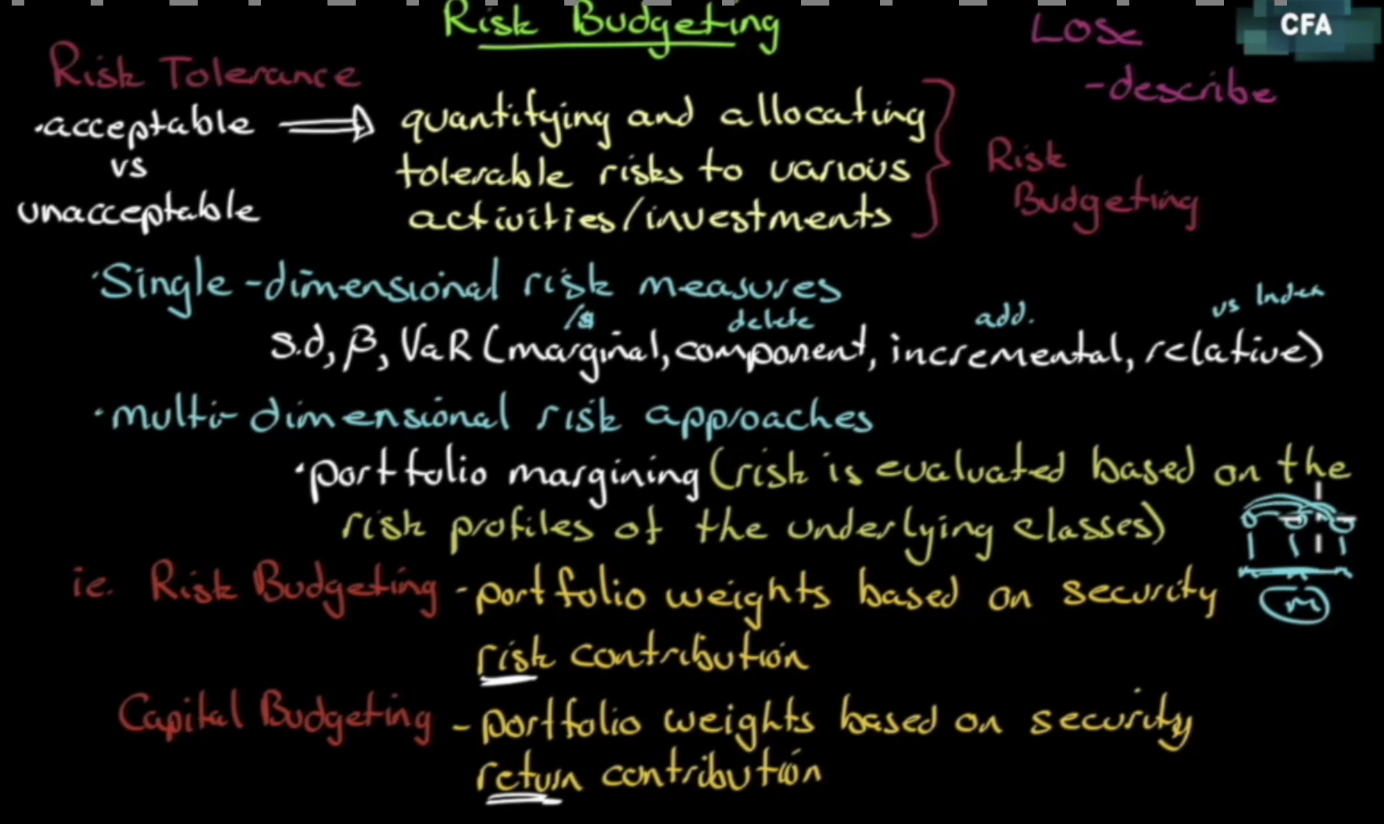 Risk Budgeting
LOS
-describe
CFA
Risk Tolerance
·acceptable
vs
unacceptable
quantifying and allocating
tolerable risks to various
activities/investments
Risk
Budgeting
·Single-dimensional risk measures
/$ delete add. vs Index
s.d, β, VaR (marginal, component, incremental, relative)
·multi-dimensional risk approaches
·portfolio margining (risk is evaluated based on the
risk profiles of the underlying classes)
m
ie. Risk Budgeting - portfolio weights based on security
risk contribution
Capital Budgeting - portfolio weights based on security
return contribution